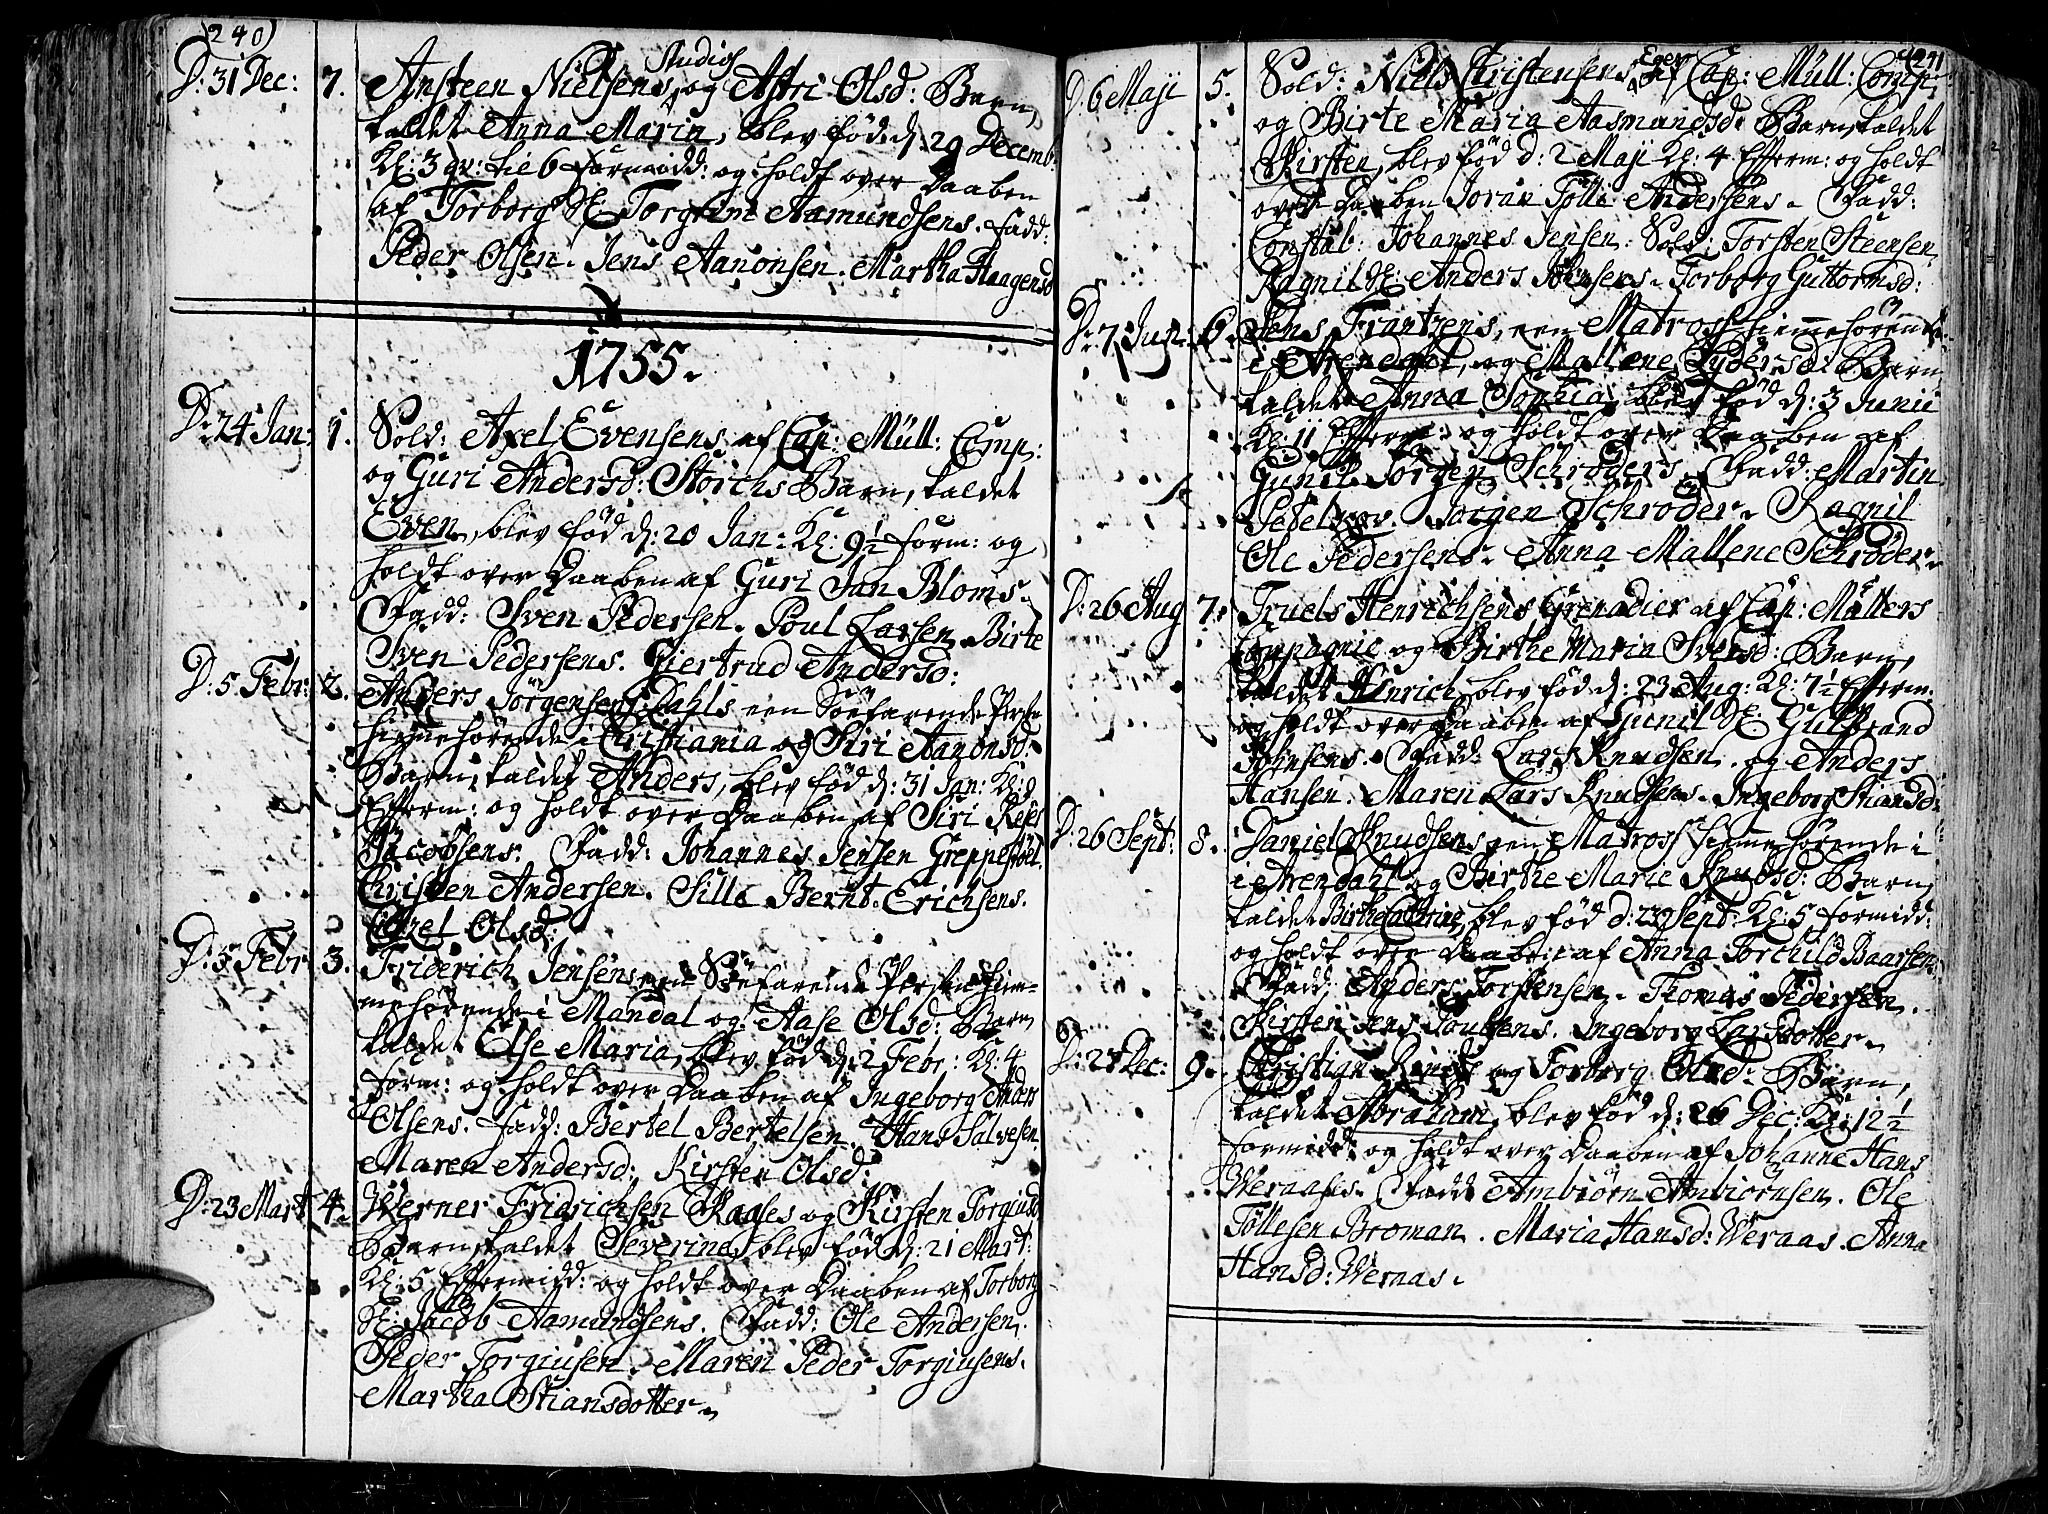 240)
D: 31 Dec: 7. Ansteen Nielsens Studios og Astri Olsd: Barn,
kaldet Anna Maria, blev fød d: 29 Decemb:
Kl: 3 qv: til 6 formidd: og holdt over Daaben
af Torborg Torgrim Aamundsens. Fadd:
Peder Olsen. Jens Aanonsen. Martha Haagensd
1755.
D: 24 Jan: 1. Sold: Axel Evensens af Cap: Müll: Comp:
og Guri Andersd: Storchs Barn, kaldet
Even, blev fød d: 20 Jan: Kl: 9½ form: og
holdt over Daaben af Guri Jan Bloms.
Fadd: Sven Pedersen. Poul Larsen. Birte
Sven Pedersens. Giertrud Andersd:
D: 5 Febr: 2. Anders Jörgensens Dahls een Söefarende Person
hiemmehörende i Christiania og Siri Aanonsd:
Barn, kaldet Anders, blev fød d: 31 Jan: Kl: 9
Efterm: og holdt over Daaben af Siri
Jacobsens. Fadd: Johannes Jensen Greppestöel.
Christen Andersen. Sille Bernt Erichsens.
Olsd:
D: 5 Febr 3. Friderich Jensens een Söefarende Person hiem-
mehörende i Mandal og Aase Olsd: Barn
kaldet Else Maria, blev fød d: 2 Febr: Kl: 4
form: og holdt over Daaben af Ingeborg Anders
Olsens. Fadd: Bertel Bertelsen. Hans Salvesen
Maren Andersd: Kirsten Olsd:
D: 23 Mart 4. Werner Fridrichsen Kaases og Kirsten Torgiusd
Barn, kaldet Severine, blev fød d: 21 Mart:
Kl: 5 Eftermidd: og holdt over Daaben af Torborg
Jacob Aamundsens. Fadd: Ole Andersen.
Peder Torgiusen. Maren Peder Torgiusens.
Martha Stiansdotter.
(241
D. 6 Maji 5. Sold: Niels Christensens Eger af Cap: Müll: Comp:
og Birte Maria Aasmundsd: Barn, kaldet
Kirsten, blev fød d: 2 Maji Kl: 4 Efterm: og holdt
over Daaben Joran Tölle Andersens. Fadd:
Constab: Johannes Jensen. Sold: Torsten Steensen
Ragnil Anders Johnsens. Torborg Guttormsd:
D: 7 Jun: 6. Jens Frantzens, een Matros hiemmehörende
i Arendahl, og Mallene Pedersd: Barn
kaldet Anna Sophia, blev fød d: 3 Junii
Kl: 11 Efterm: og holdt over Daaben af
Gunil Jörgen Schröders. Fadd: Martin
Jörgen Schröder. Ragnil
Ole Pedersens. Anna Mallene Schröder.
D: 26 Aug 7. Truels Henrichsens Grenadier af Cap: Müllers
Compagnie og Birthe Maria Svensd: Barn,
kaldet Henrich, blev fød d: 23 Aug: Kl: 7½ Efterm:
og holdt over Daaben af Gunil Gulbrand
Johnsens. Fadd: Lars Knudsen. og Anders
Hansen. Maren Lars Knudsens. Ingeborg Stiansd:
D: 26 Sept: 8. Daniel Knudsens een Matros hiemmehörende i
i Arendahl og Birthe Marie Knudsd: Barn,
kaldet, blev fød d: 23 Sept: Kl: 5 formidd:
og holdt over Daaben af Anna Torchild Baarsens
Fadd: Anders Torstensen. Thomas Pedersen.
Kirsten Jens Poulsens. Ingeborg Larsdotter.
D: 27 Dec: 9. Christian og Torborg Olsd: Barn,
kaldet Abraham, blev fød d: 26 Dec: Kl: 12½
formidd: og holdt over Daaben af Johanne Hans
Weraases. Fadd: Ambiörn Ambiörnsen. Ole
Töllesen Broman. Maria Hansd: Weraas. Anna
Hansd: Weraas.